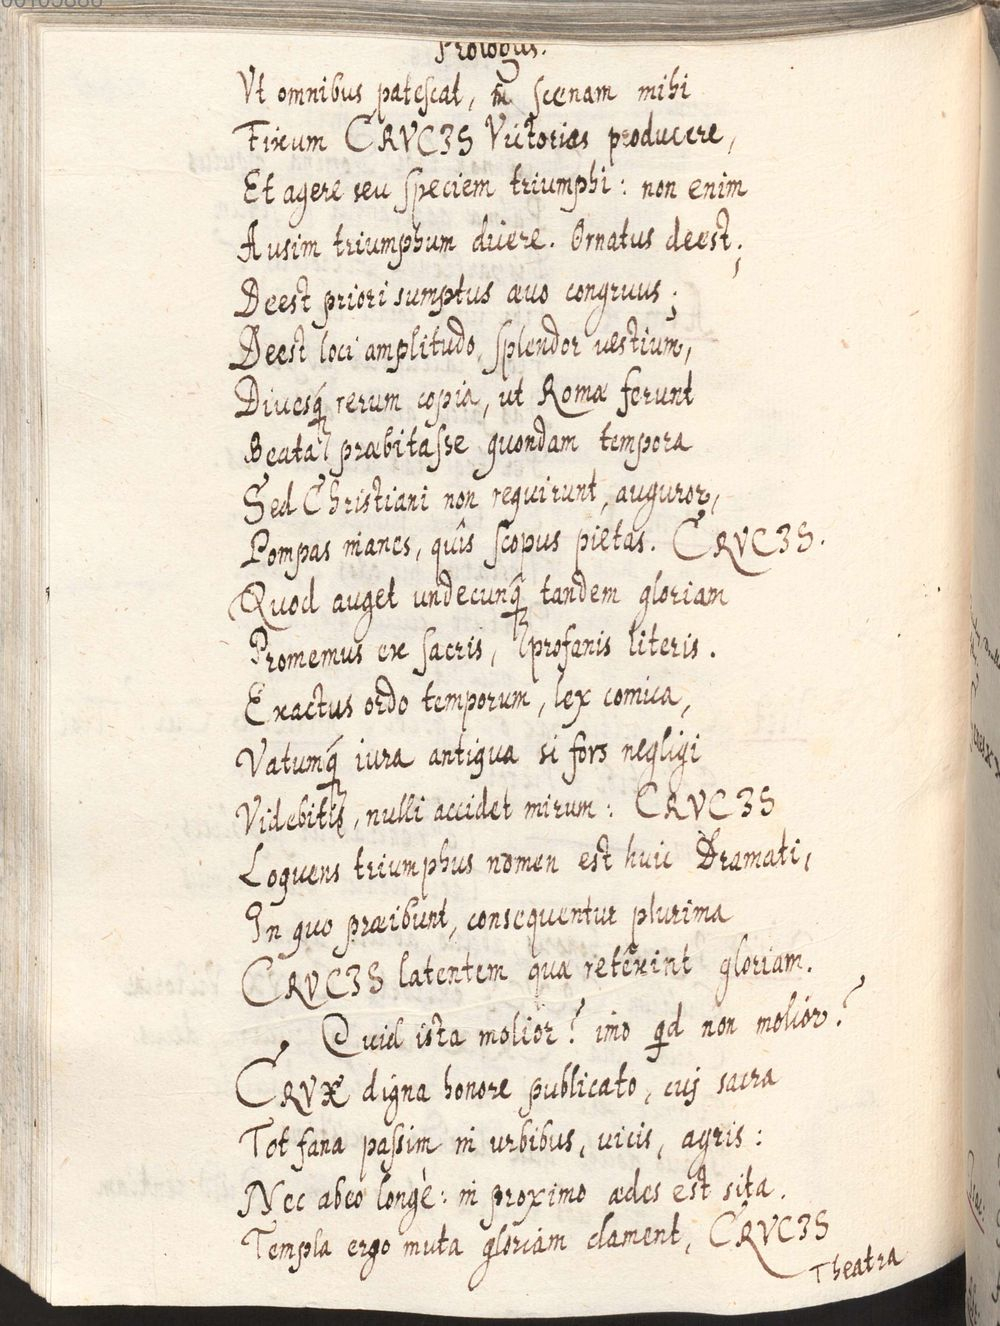 Prologus.
Vt omnibus patescat, in scenam mihi
Fixum CRVCIS Victorias producere,
Et agere seu speciem triumphi: non enim
Ausim triumphum dicere. Ornatus deest;
Deest priori sumptus ævo congruus;
Deest loci amplitudo, splendor vestium,
Divesq́ rerum copia, ut Romæ ferunt
Beata præbitasse quondam tempora
Sed Christiani non requirunt, auguror,
Pompas inanes, quîs scopus pietas. CRVCIS.
Quod auget undecunq́ tandem gloriam
Promemus ex sacris, profanis literis.
Exactus ordo temporum, lex comica,
Vatumq́ iura antiqua si fors negligi
Videbitis, nulli accidet mirum: CRVCIS
Loquens triumphus nomen est huic Dramati,
In quo præibunt, consequentur plurima
CRVCIS latentem quæ retexint gloriam.
Quid ista molior? imo qd non molior?
CRVX digna honore publicato, cuj sacra
Tot fana passim in urbibus, vicis, agris:
Nec abeo longè: in proximo ædes est sita.
Templa ergo muta gloriam clament, CRVCIS
Theatra